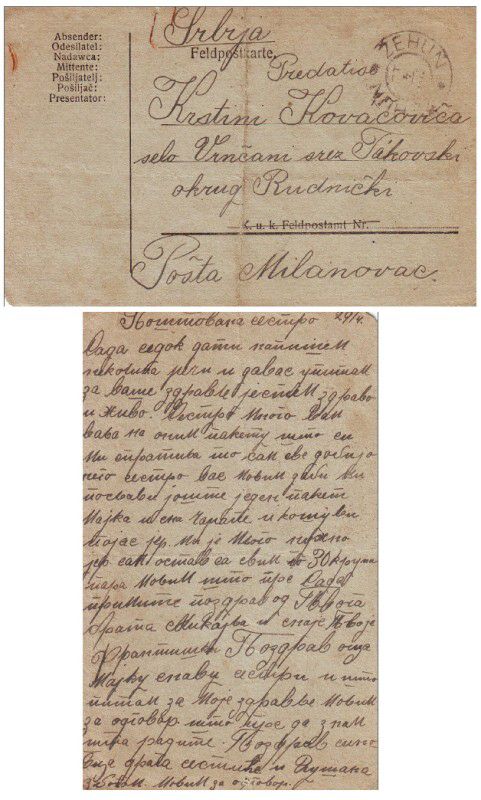 Srbija
Absender:
Odesilatel:
Nadawca:
Mittente:
Pošiljatelj:
Pošiljač:
Presentator:
Feldpostkarte.
ZEMUN
Predati
Krstini Kovačovića
selo Vrnčani srez Takovski
okrug Rudnički
K. u. k. Feldpostamt Nr.
Pošta Milanovac.
Поштована сестро 29/4.
Сада седок дати напишем
неколико речи и давас упитам
за ваше здравље јестели здраво
и живо. Сестро много вам
вала на оним пакету што си
ми спратила то сам све добијо
сестро вас молим даби ми
послали јоште један пакет
мајка и она чарапе и кошуљи
појас јер ми је много нужно
јер сам остао са свим 30 круна
пара молим што пре Сада
примите поздрав од твога
брата Микајла и снаје твоје
Поздрав
мајку снаву сестри и што
питам за моје здравље молим
за одговор што пре да знам
шта радите. Поздрав
браћа и Душана
молим за одговор.